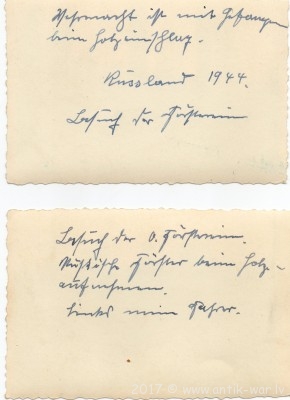 Wehrmacht ist mit Gefangen
beim Holzeinschlag.
Russland 1944.
Besuch der Försterein
Besuch der O. Försterein.
Russische Förster beim Holz-
aufnehmen.
Links mein Fahrer.
2017 © www.antik-war.lv